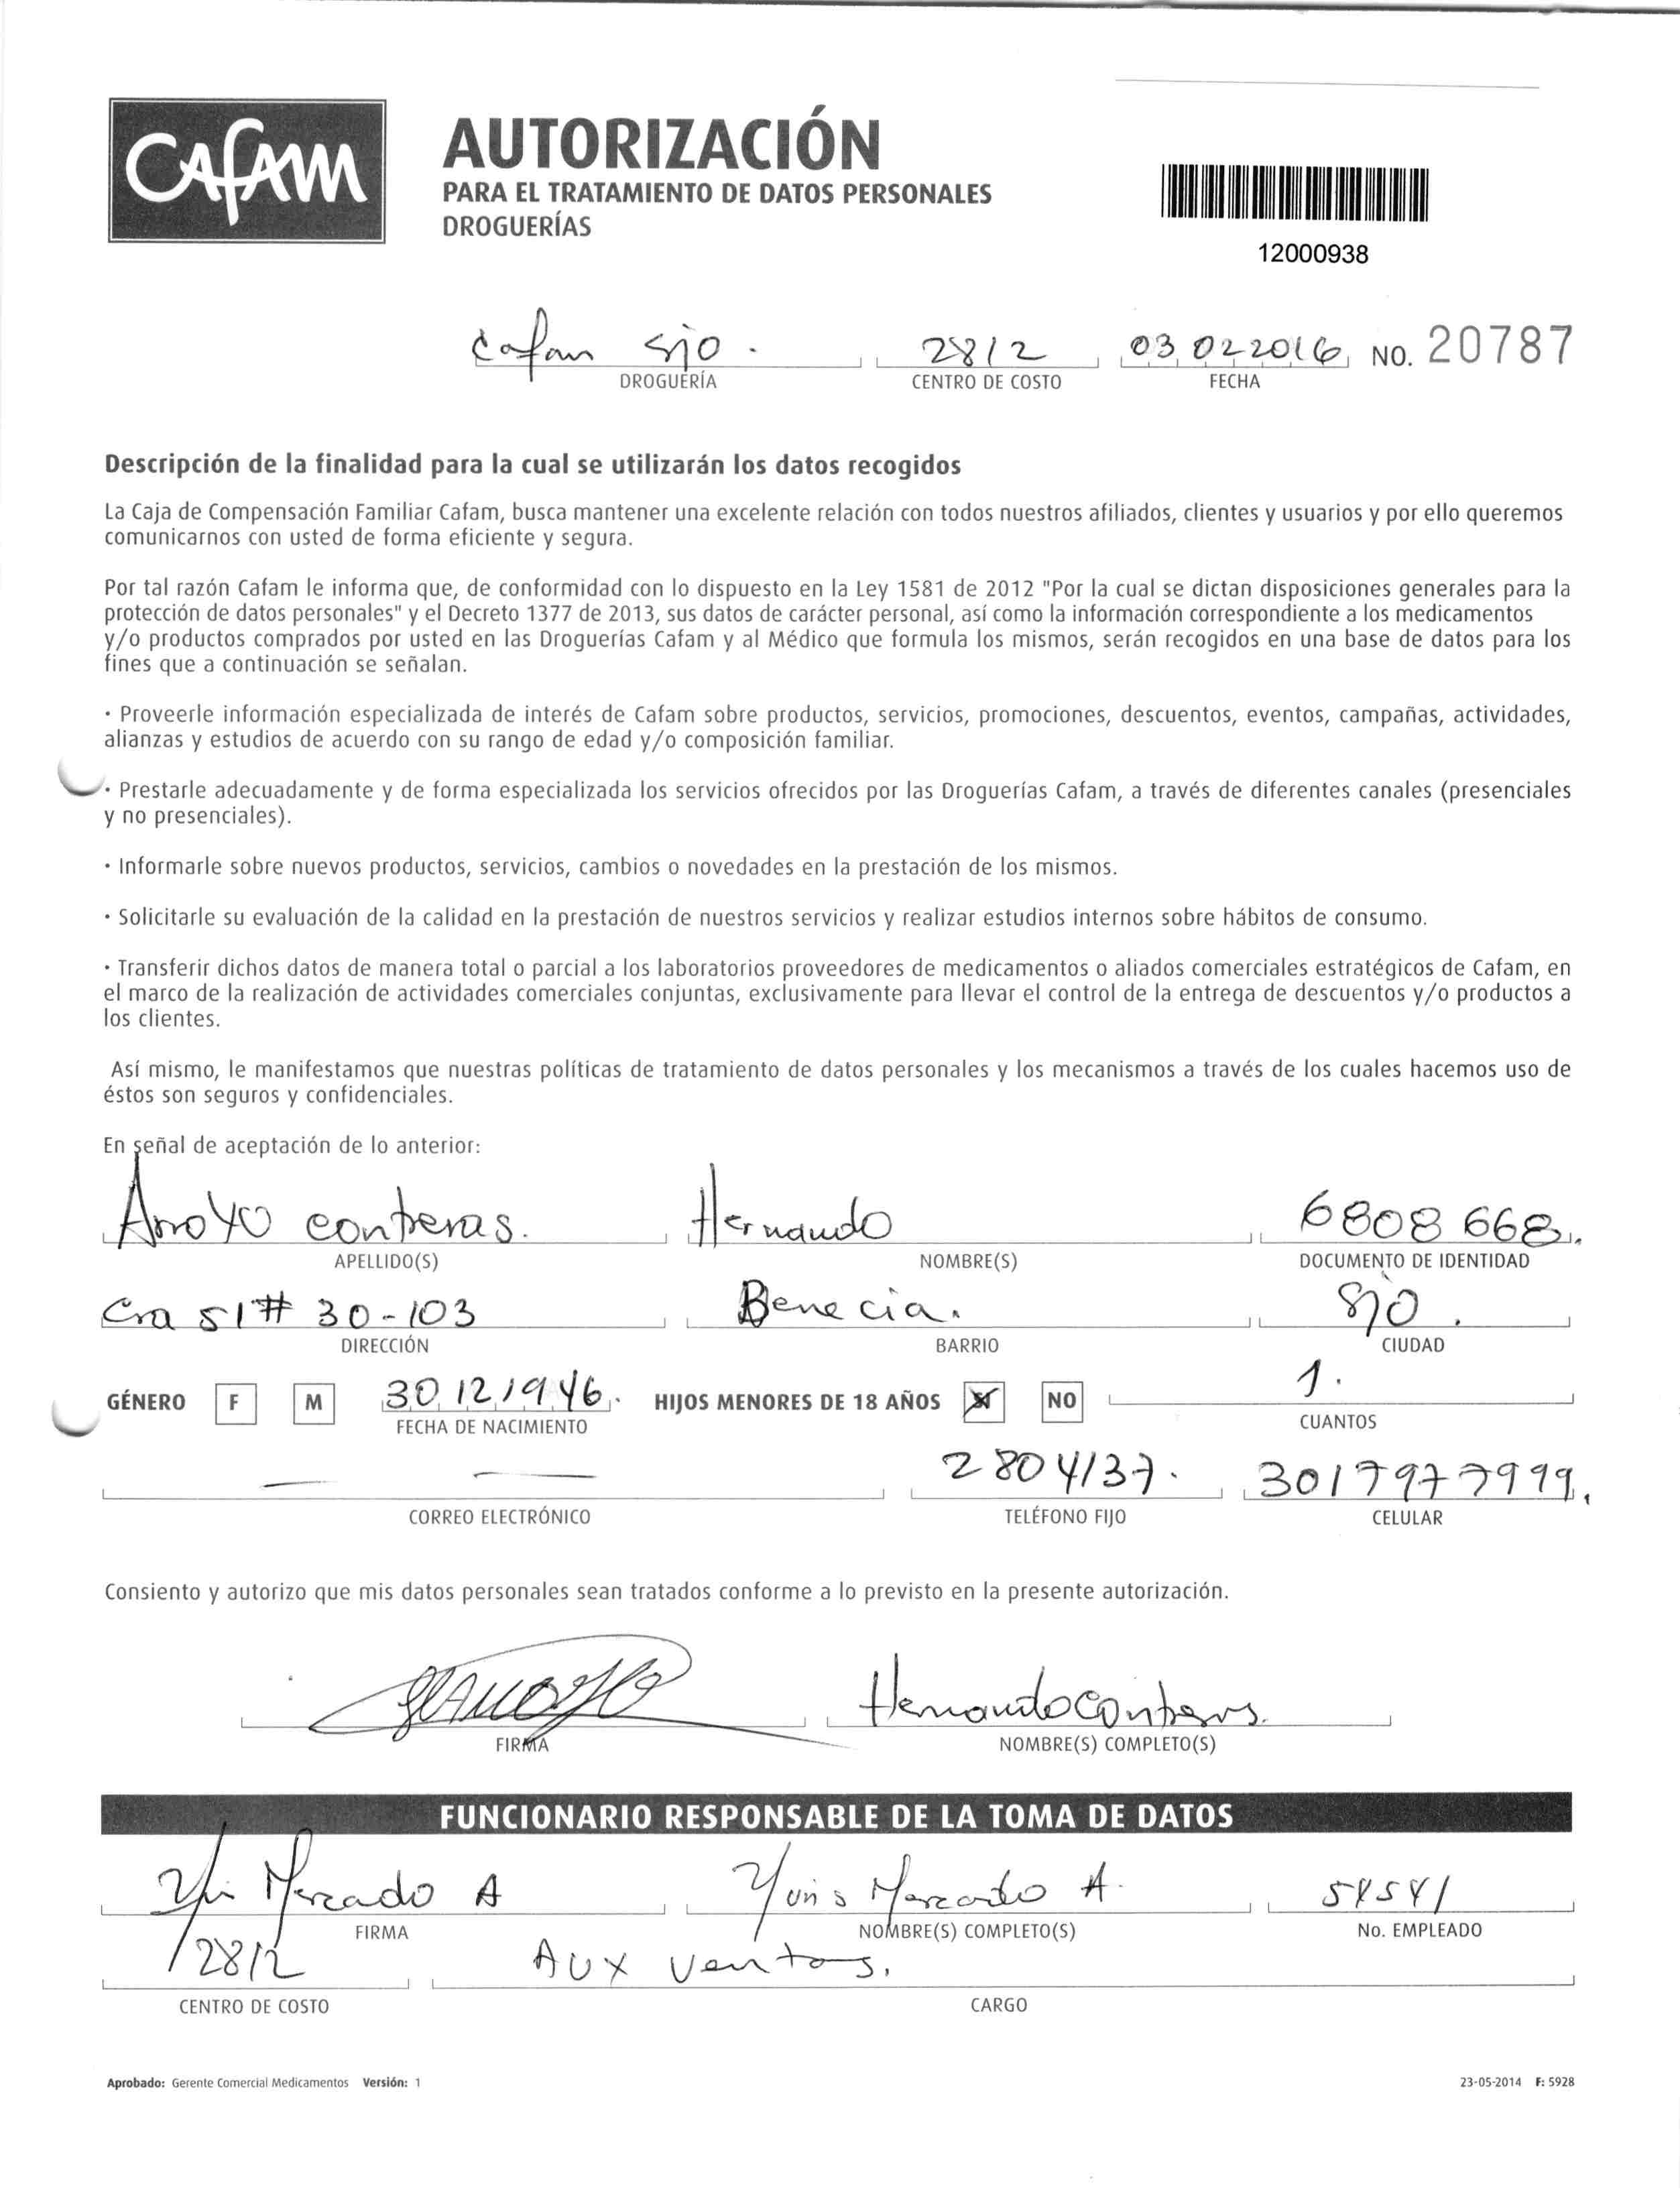 CAFAM
AUTORIZACIÓN
PARA EL TRATAMIENTO DE DATOS PERSONALES
DROGUERÍAS
12000938
Cafam sjo. 2812 03 02 2016 NO. 20787
DROGUERÍA CENTRO DE COSTO FECHA
Descripción de la finalidad para la cual se utilizarán los datos recogidos
La Caja de Compensación Familiar Cafam, busca mantener una excelente relación con todos nuestros afiliados, clientes y usuarios y por ello queremos
comunicarnos con usted de forma eficiente y segura.
Por tal razón Cafam le informa que, de conformidad con lo dispuesto en la Ley 1581 de 2012 "Por la cual se dictan disposiciones generales para la
protección de datos personales" y el Decreto 1377 de 2013, sus datos de carácter personal, así como la información correspondiente a los medicamentos
y/o productos comprados por usted en las Droguerías Cafam y al Médico que formula los mismos, serán recogidos en una base de datos para los
fines que a continuación se señalan.
· Proveerle información especializada de interés de Cafam sobre productos, servicios, promociones, descuentos, eventos, campañas, actividades,
alianzas y estudios de acuerdo con su rango de edad y/o composición familiar.
· Prestarle adecuadamente y de forma especializada los servicios ofrecidos por las Droguerías Cafam, a través de diferentes canales (presenciales
y no presenciales).
· Informarle sobre nuevos productos, servicios, cambios o novedades en la prestación de los mismos.
· Solicitarle su evaluación de la calidad en la prestación de nuestros servicios y realizar estudios internos sobre hábitos de consumo.
· Transferir dichos datos de manera total o parcial a los laboratorios proveedores de medicamentos o aliados comerciales estratégicos de Cafam, en
el marco de la realización de actividades comerciales conjuntas, exclusivamente para llevar el control de la entrega de descuentos y/o productos a
los clientes.
Así mismo, le manifestamos que nuestras políticas de tratamiento de datos personales y los mecanismos a través de los cuales hacemos uso de
éstos son seguros y confidenciales.
En señal de aceptación de lo anterior:
Arroyo contreras. Hernando 6808 668.
APELLIDO(S) NOMBRE(S) DOCUMENTO DE IDENTIDAD
Cra 51 # 30-103 Benecia. sjo.
DIRECCIÓN BARRIO CIUDAD
GÉNERO F M 30 12 1946. HIJOS MENORES DE 18 AÑOS SI NO 1.
FECHA DE NACIMIENTO CUANTOS
2804137. 3017977999.
CORREO ELECTRÓNICO TELÉFONO FIJO CELULAR
Consiento y autorizo que mis datos personales sean tratados conforme a lo previsto en la presente autorización.
Hernando Contreras.
FIRMA NOMBRE(S) COMPLETO(S)
FUNCIONARIO RESPONSABLE DE LA TOMA DE DATOS
Mercado A Yuris Mercado A. 54541
FIRMA NOMBRE(S) COMPLETO(S) No. EMPLEADO
2812 AUX Ventas.
CENTRO DE COSTO CARGO
Aprobado: Gerente Comercial Medicamentos Versión: 1 23-05-2014 F: 5928